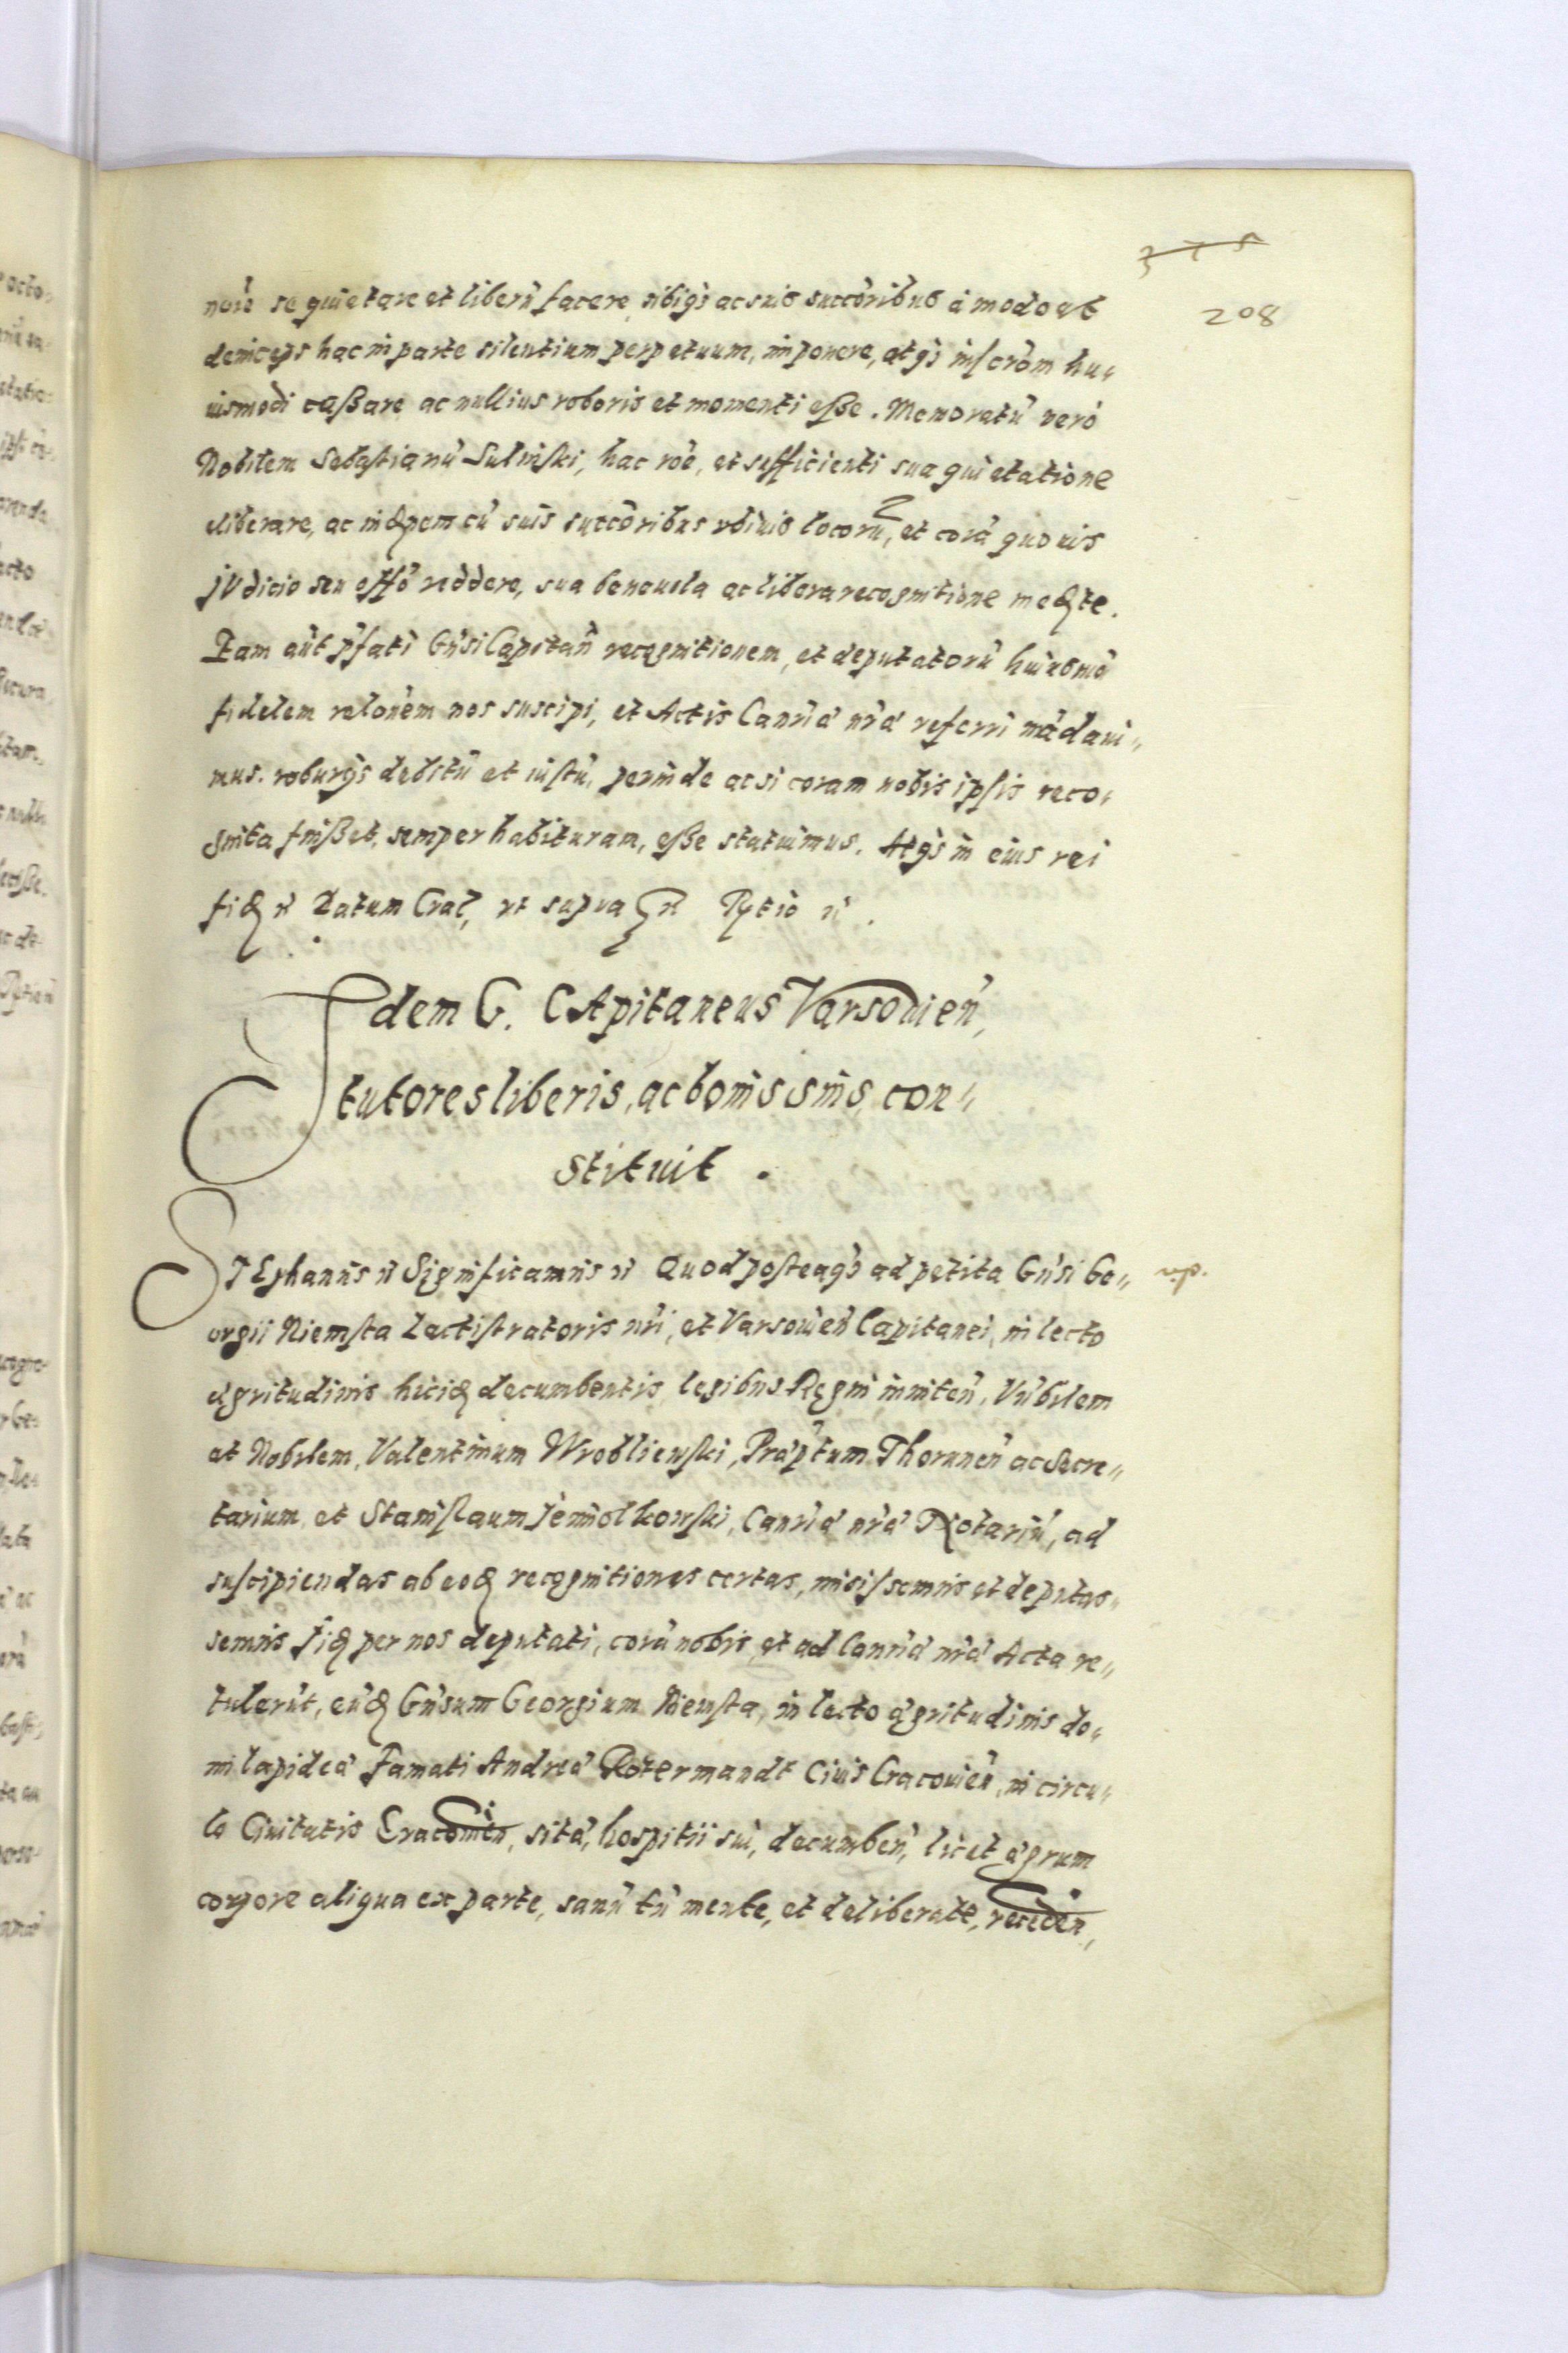 375
208
se quietare et liberũ facere, sibiq3 ac suis succõribus à modo et
deinceps hac in parte silentium perpetuum, imponere, atq3 inscrõm hu„
iusmodi caßare ac nullius roboris et momenti eße. Memoratũ verò
Nobilem Sebastianũ Sulinski, hac rõe, et sufficienti sua quietatione
eliberare, ac indẽpem cũ suis succõribus vbiuis locorũ, et corã quouis
judicio seu offõ reddere, sua beneuola ac libera recognitione meďte.
Eam aũt pfati Gñsi Capitañ recognitionem, et deputatorũ huiusmõi
fidelem relõnem nos suscipi, et Actis Canrïa nr̃a referri mãdaui„
mus. roburq3 debitũ et iustũ, perinde ac si coram nobis ipsis reco„
gnita fuißet, semper habituram, eße statuimus. Atq3 in eius rei
fid &c Datum Crac, vt supra &c
Idem G. CApitaneus Varsouień,
tutores liberis, ac bonis suis, con„
stituit.
STEphanus &c Significamus &c Quod posteaq3 ad petita Gñsi Ge„
up.
orgii Niemsta Lectistratoris nr̃i, et Varsouień Capitanei, in lecto
ęgritudinis hicid decumbentis, legibus Regni inniteñ, Vñbilem
et Nobilem, Valentinum Wroblieuski, Præptum Thoruneñ ac Secre„
tarium, et Stanislaum Jemiolkowski, Canrïa nr̃a Notariũ, ad
suscipiendas ab eod recognitiones certas, misissemus et deputas„
semus Jid per nos deputati, corã nobis, et ad Canrïa nr̃a Acta re„
tulerũt, eũd Gñsum Georgium Niemsta, in lecto ęgritudinis do„
mi lapideã Famati Andreã Rotermandt Ciuis Cracouień, in circu„
lo Ciuitatis Cracouień, sitã, hospitii sui, decumbeñ, licet ęgrum
corpore aliqua ex parte, sanũ tñ mente, et deliberate, recedeñ,